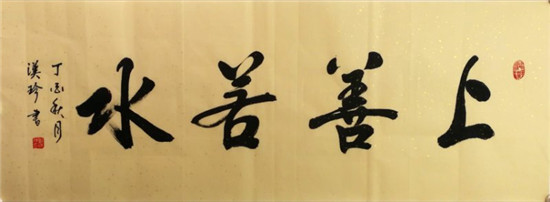 上善若水
丁酉秋月
漢珍書